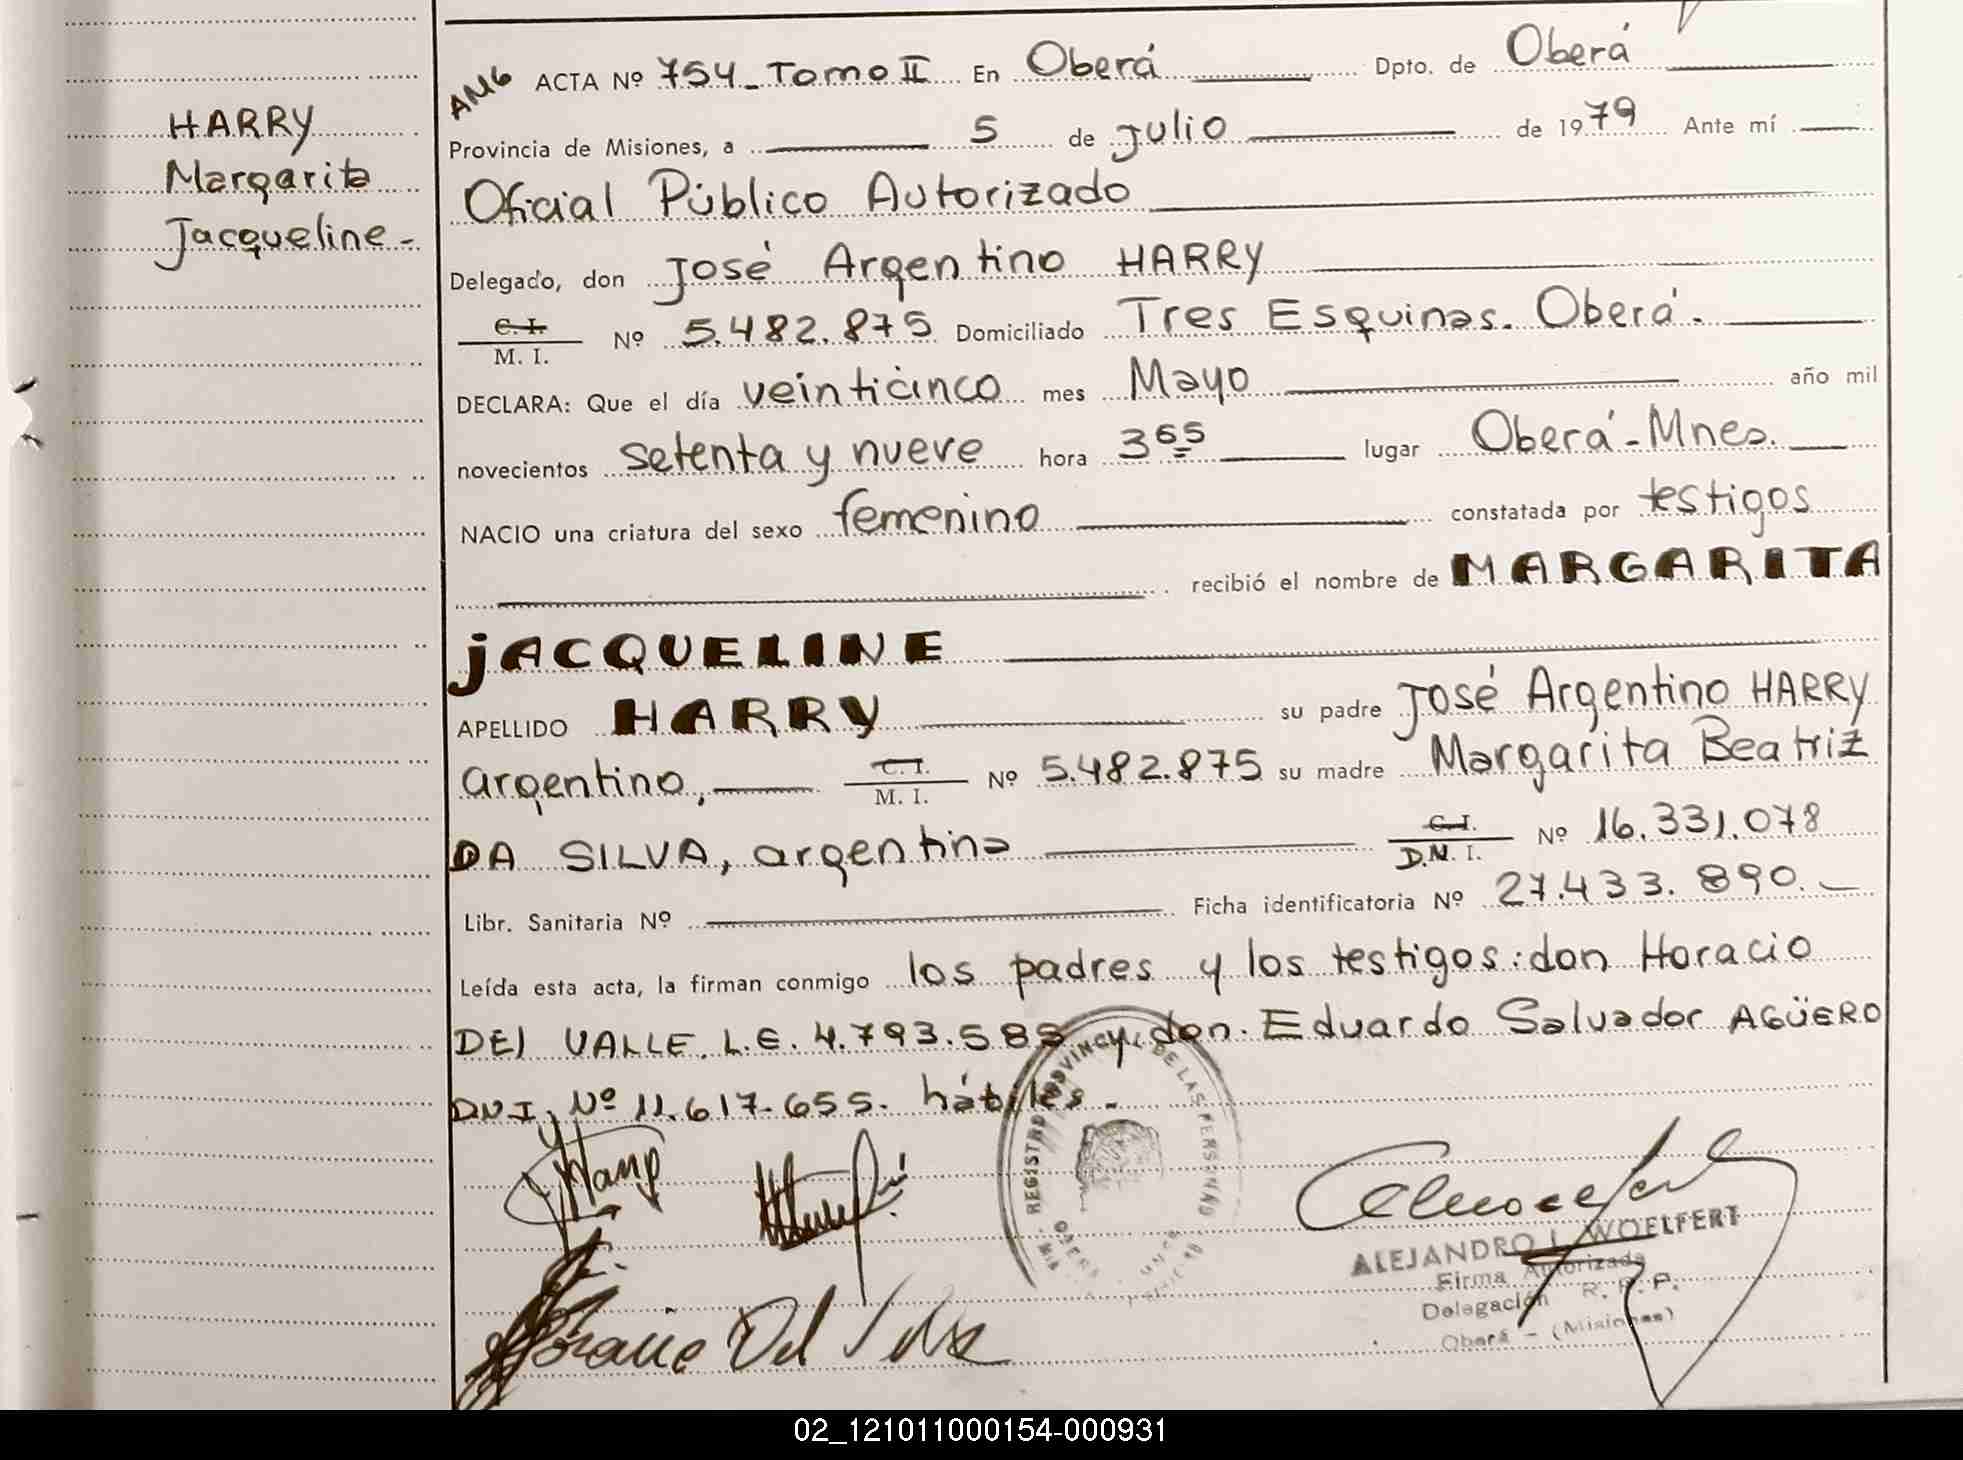 HARRY
Margarita
Jacqueline-
AMG ACTA Nº 754_ Tomo II En Oberá Dpto. de Oberá
Provincia de Misiones, a 5 de julio de 1979 Ante mí
Oficial Público Autorizado
Delegado, don José Argentino HARRY
C. I.
M. I.
Nº 5.482.875 Domiciliado Tres Esquinas. Oberá.
DECLARA: Que el día veinticinco mes Mayo año mil
novecientos setenta y nueve hora lugar Oberá-Mnes.
NACIO una criatura del sexo femenino constatada por testigos
recibió el nombre de MARGARITA
jACQUELINE
APELLIDO HARRY su padre José Argentino HARRY
argentino, C. I. M. I. Nº 5.482.875 su madre Margarita Beatriz
DA SILVA, argentina C. I. D.N. I. Nº 16.331.078
Libr. Sanitaria Nº Ficha identificatoria Nº 27.433.890.-
Leída esta acta, la firman conmigo los padres y los testigos: don Horacio
DEl VALLE. L.E. 4.793.585 y don. Eduardo Salvador AGÜERO
DNI. Nº 11.617.655. hábiles.-
REGISTRO PROVINCIAL DE LAS PERSONAS
OBERA
ALEJANDRO L. WOELFERT
Firma Autorizada
Delegación R. P. P.
Oberá - (Misiones)
02_121011000154-000931